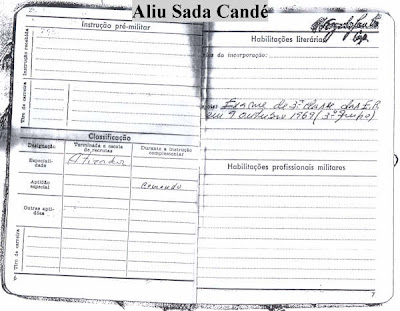 Aliu Sada Candé
Instrução pré-militar
Instrução recebida
Tiro de carreira
Classificação
Designação
Terminada a escola de recrutas
Durante a instrução complementar
Especialidade
Atirador
Aptidão especial
Comando
Outras aptidões
Tiro de carreira
6
Habilitações literárias
da incorporação:
Exame de 3ª classe das E.R.
em 9 outubro 1969 (3º grupo)
Habilitações profissionais militares
7